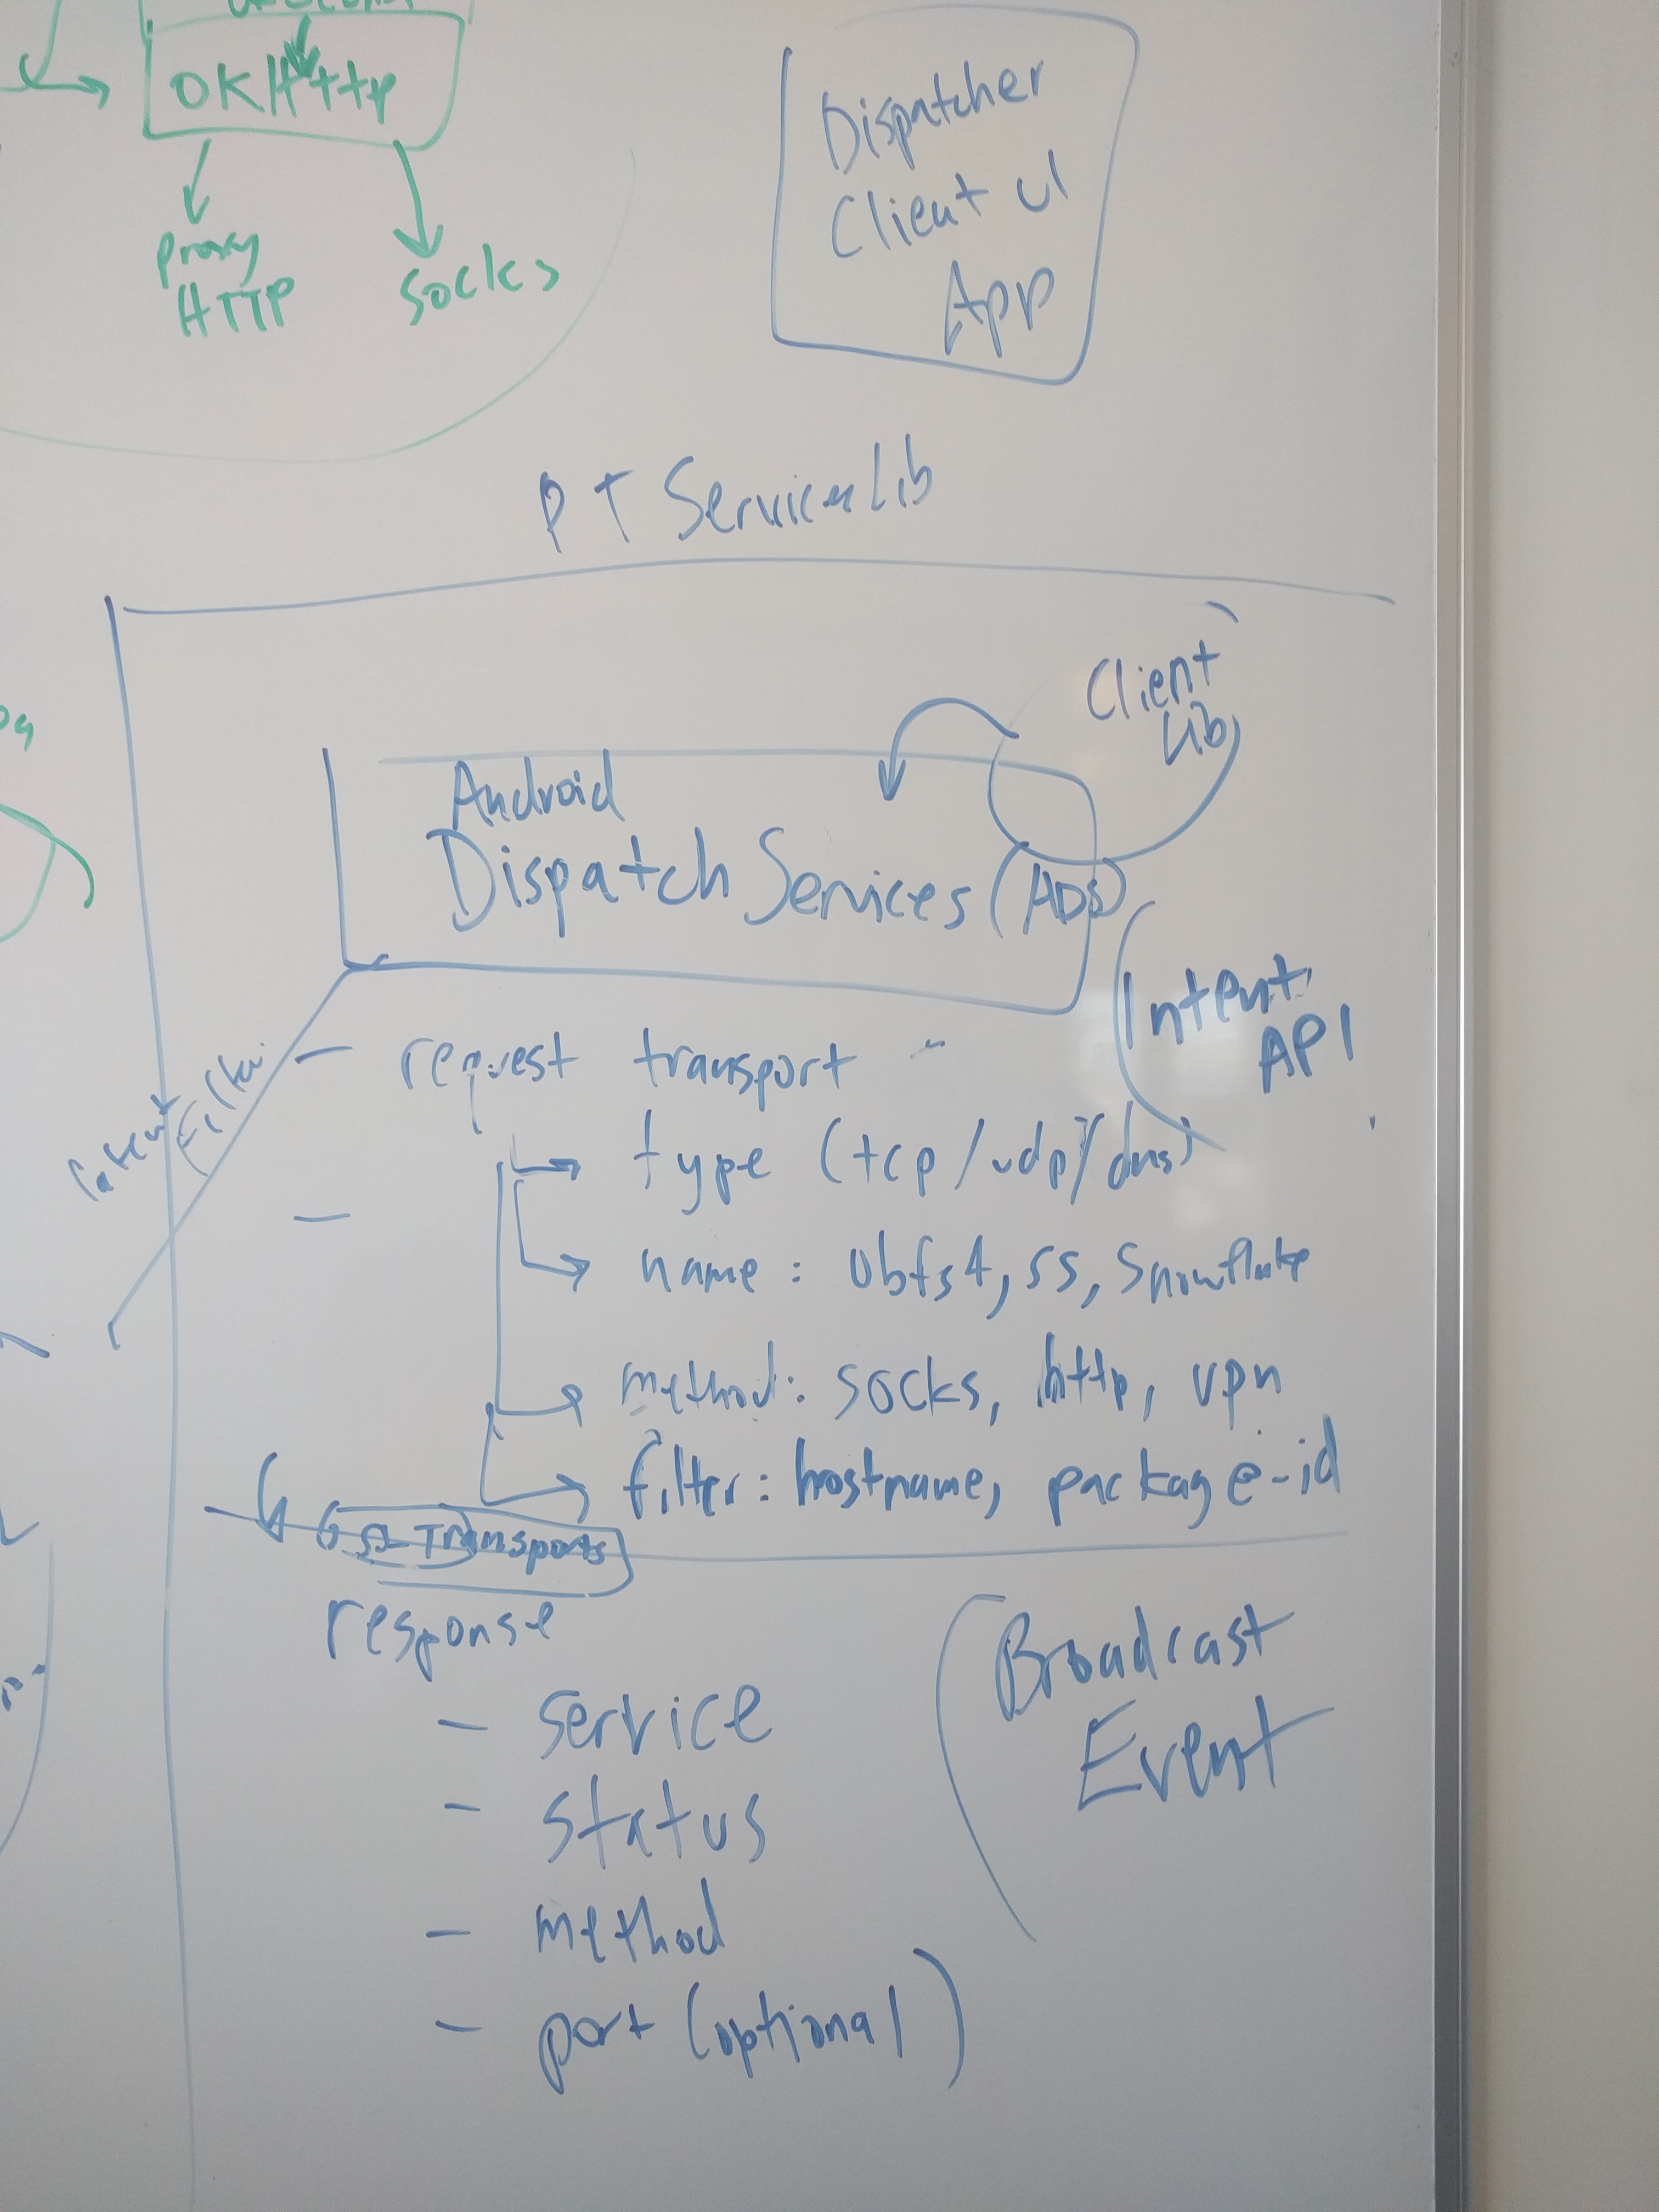 OKHttp
Proxy
HTTP
Socks
Dispatcher
Client UI
App
PT Service Lib
Client
Lib
Android
Dispatch Services (ADS)
Intent
API
Intent Filter
- request transport
type (tcp/udp/dns)
name: obfs4, ss, snowflake
method: socks, http, vpn
filter: hostname, package-id
Transports
response
- service
- status
- method
- port (optional)
Broadcast
Event